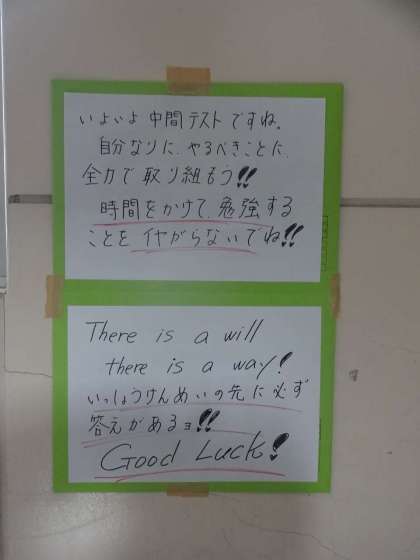 いよいよ中間テストですね。
自分なりに、やるべきことに、
全力で取り組もう!!
時間をかけて、勉強する
ことをイヤがらないでね!!
There is a will
there is a way!
いっしょうけんめいの先に必ず
答えがあるョ!!
Good Luck!